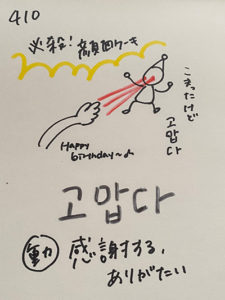 410
必殺！顔面ケーキ
こまったけど
고맙다
Happy
birthday〜♪
고맙다
動 感謝する,
ありがたい